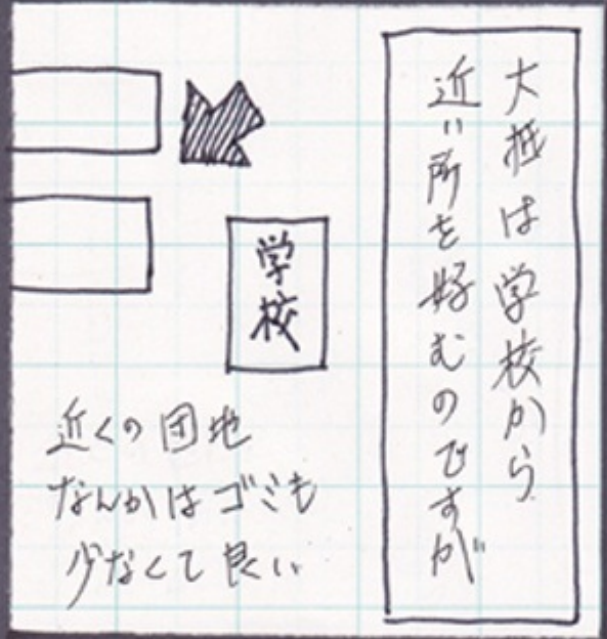 大抵は学校から
近い所を好むのですが
学校
近くの団地
なんかはゴミも
少なくて良い